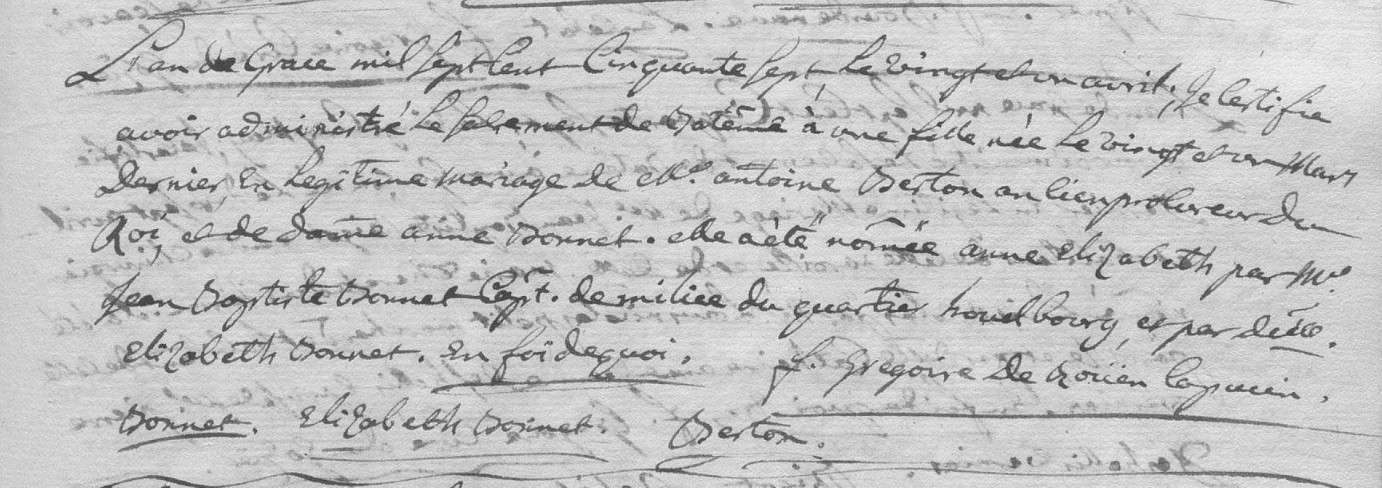 L'an de Grace mil sept Cent Cinquante sept, Le vingt et un avril, Je Certifie
avoir administré Le sacrement de Batême à une fille née Le vingt et un Mars
Dernier, En Legitime mariage de Mr. antoine Berton ancien procureur Du
Roi, et de dame anne Bonnet. elle a été nomée anne Elizabeth par Mr.
Jean Baptiste Bonnet Capt. de milice du quartier houelbourg, et par delle.
Elizabeth Bonnet. En foi de quoi. f. Gregoire De Roüen Capucin.
Bonnet. Elizabeth Bonnet. Berton.